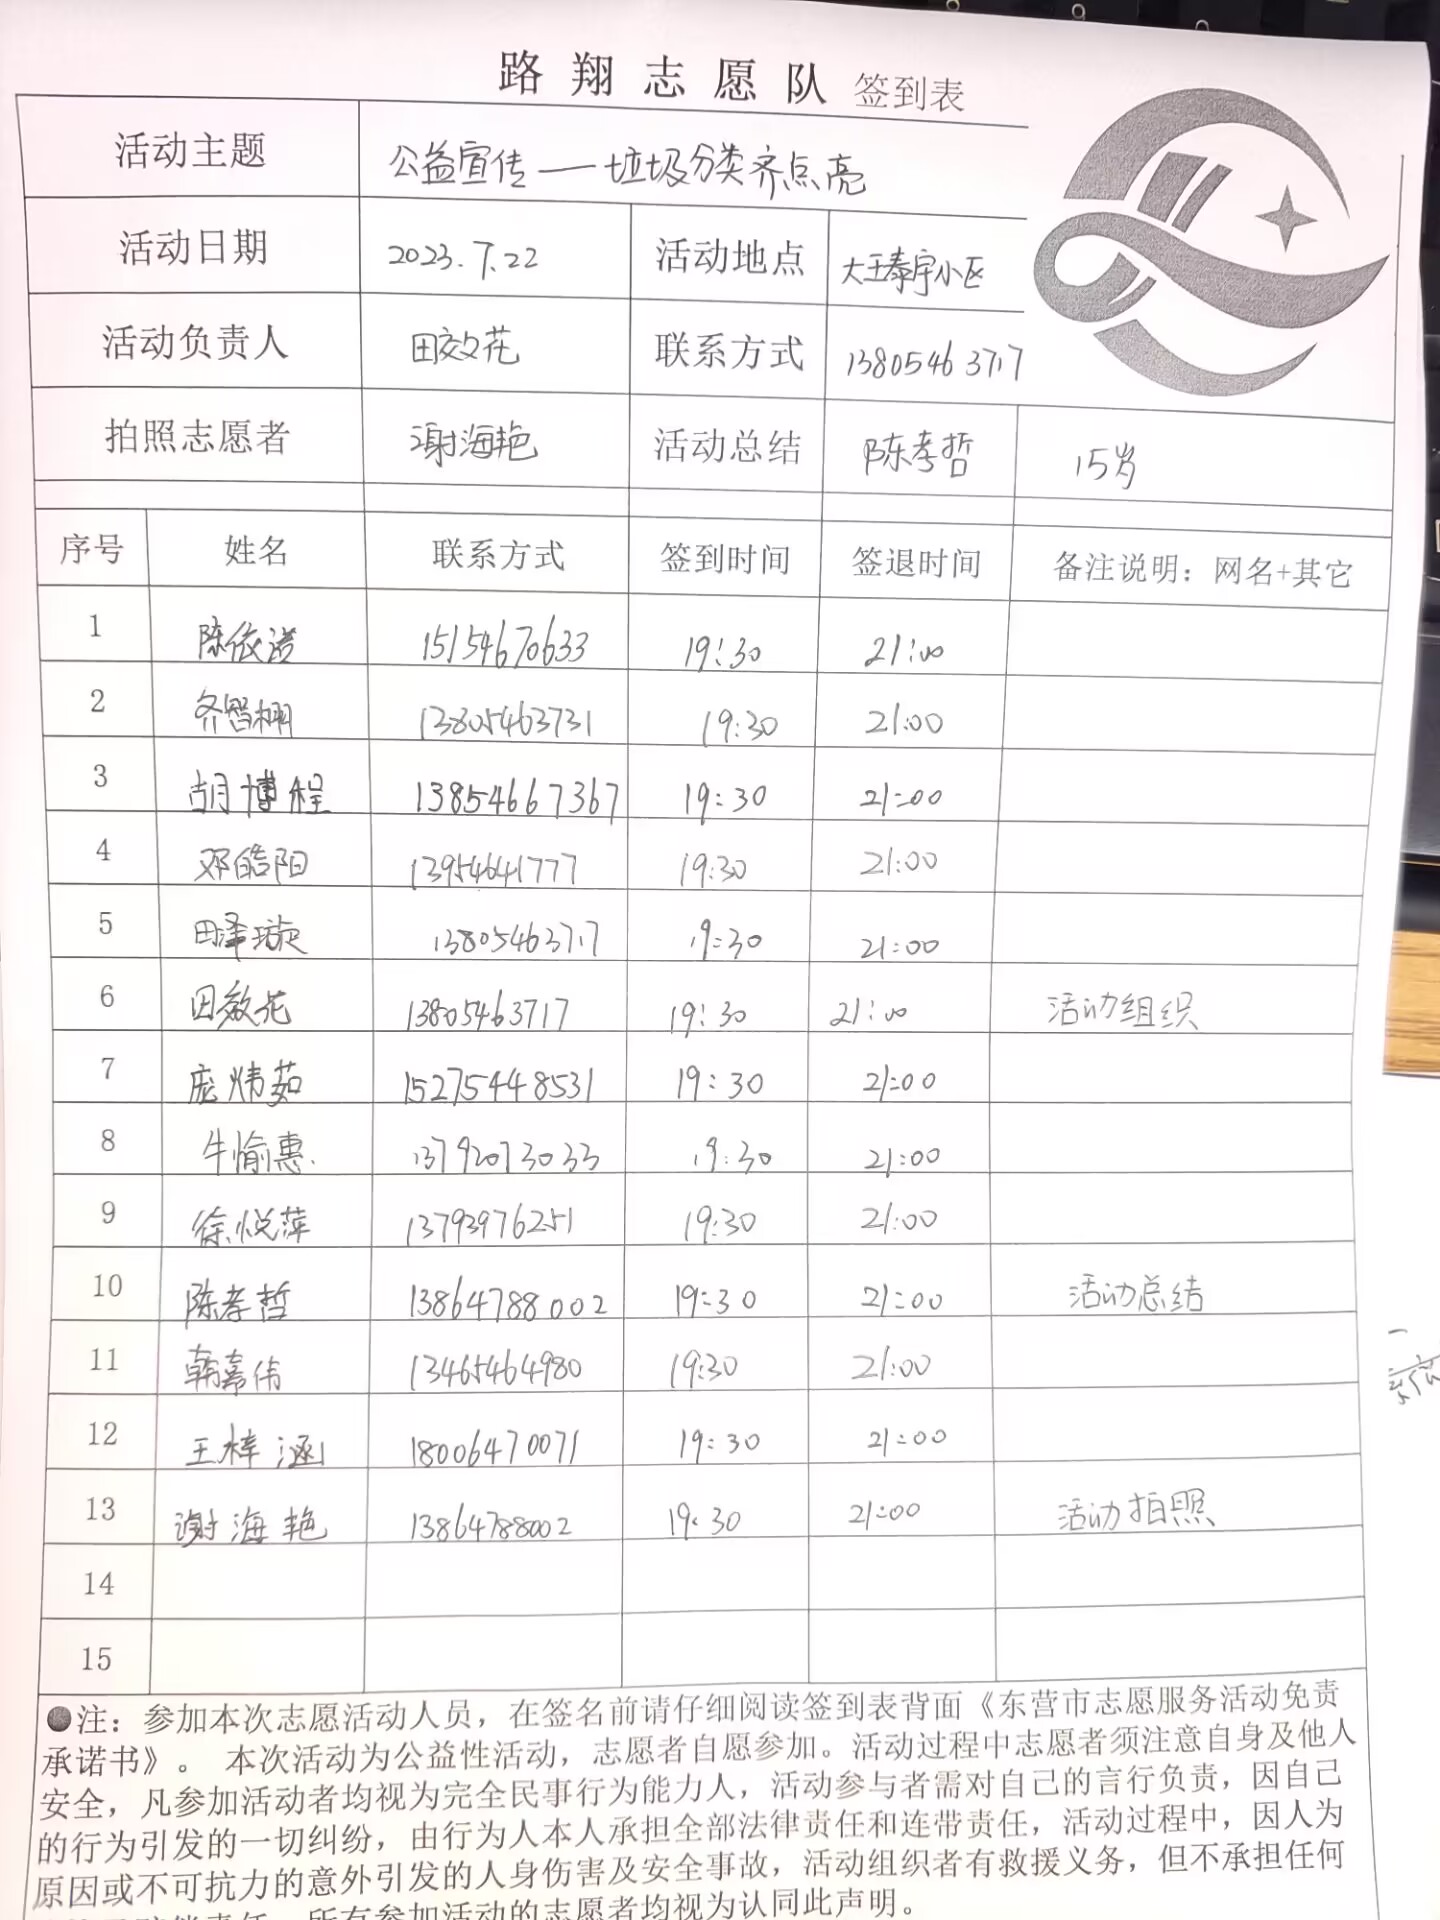 路翔志愿队 签到表
活动主题 公益宣传——垃圾分类齐点亮
活动日期 2023.7.22 活动地点 大王泰宇小区
活动负责人 田效花 联系方式 13805463717
拍照志愿者 谢海艳 活动总结 陈孝哲 15岁
序号 姓名 联系方式 签到时间 签退时间 备注说明：网名+其它
1 陈依诺 15154670633 19:30 21:00
2 齐智栩 13805463731 19:30 21:00
3 胡博程 13854667367 19:30 21:00
4 邓皓阳 13954641777 19:30 21:00
5 田泽璇 13805463717 19:30 21:00
6 田效花 13805463717 19:30 21:00 活动组织
7 庞炜茹 15275448531 19:30 21:00
8 牛愉惠 13792073033 19:30 21:00
9 徐悦萍 13793976251 19:30 21:00
10 陈孝哲 13864788002 19:30 21:00 活动总结
11 韩嘉伟 13465464980 19:30 21:00
12 王梓涵 18006470071 19:30 21:00
13 谢海艳 13864788002 19:30 21:00 活动拍照
14
15
●注：参加本次志愿活动人员，在签名前请仔细阅读签到表背面《东营市志愿服务活动免责
承诺书》。 本次活动为公益性活动，志愿者自愿参加。活动过程中志愿者须注意自身及他人
安全，凡参加活动者均视为完全民事行为能力人，活动参与者需对自己的言行负责，因自己
的行为引发的一切纠纷，由行为人本人承担全部法律责任和连带责任，活动过程中，因人为
原因或不可抗力的意外引发的人身伤害及安全事故，活动组织者有救援义务，但不承担任何
所有参加活动的志愿者均视为认同此声明。